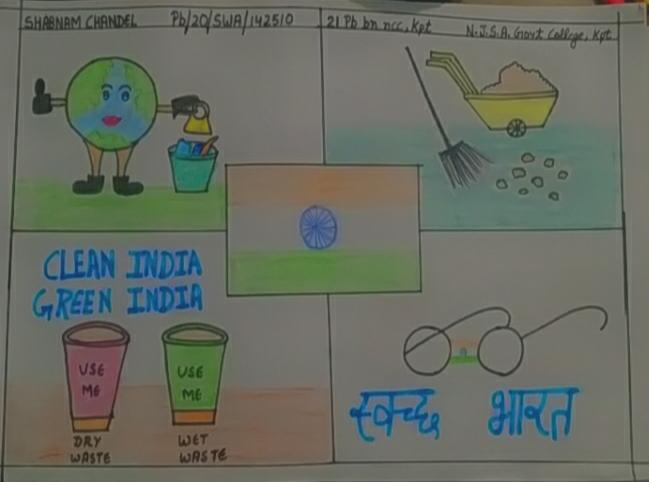 SHABNAM CHANDEL Pb/20/SWA/142510 21 Pb bn ncc, Kpt N.J.S.A. Govt College, Kpt
CLEAN INDIA
GREEN INDIA
USE
ME
DRY
WASTE
USE
ME
WET
WASTE
स्वच्छ भारत